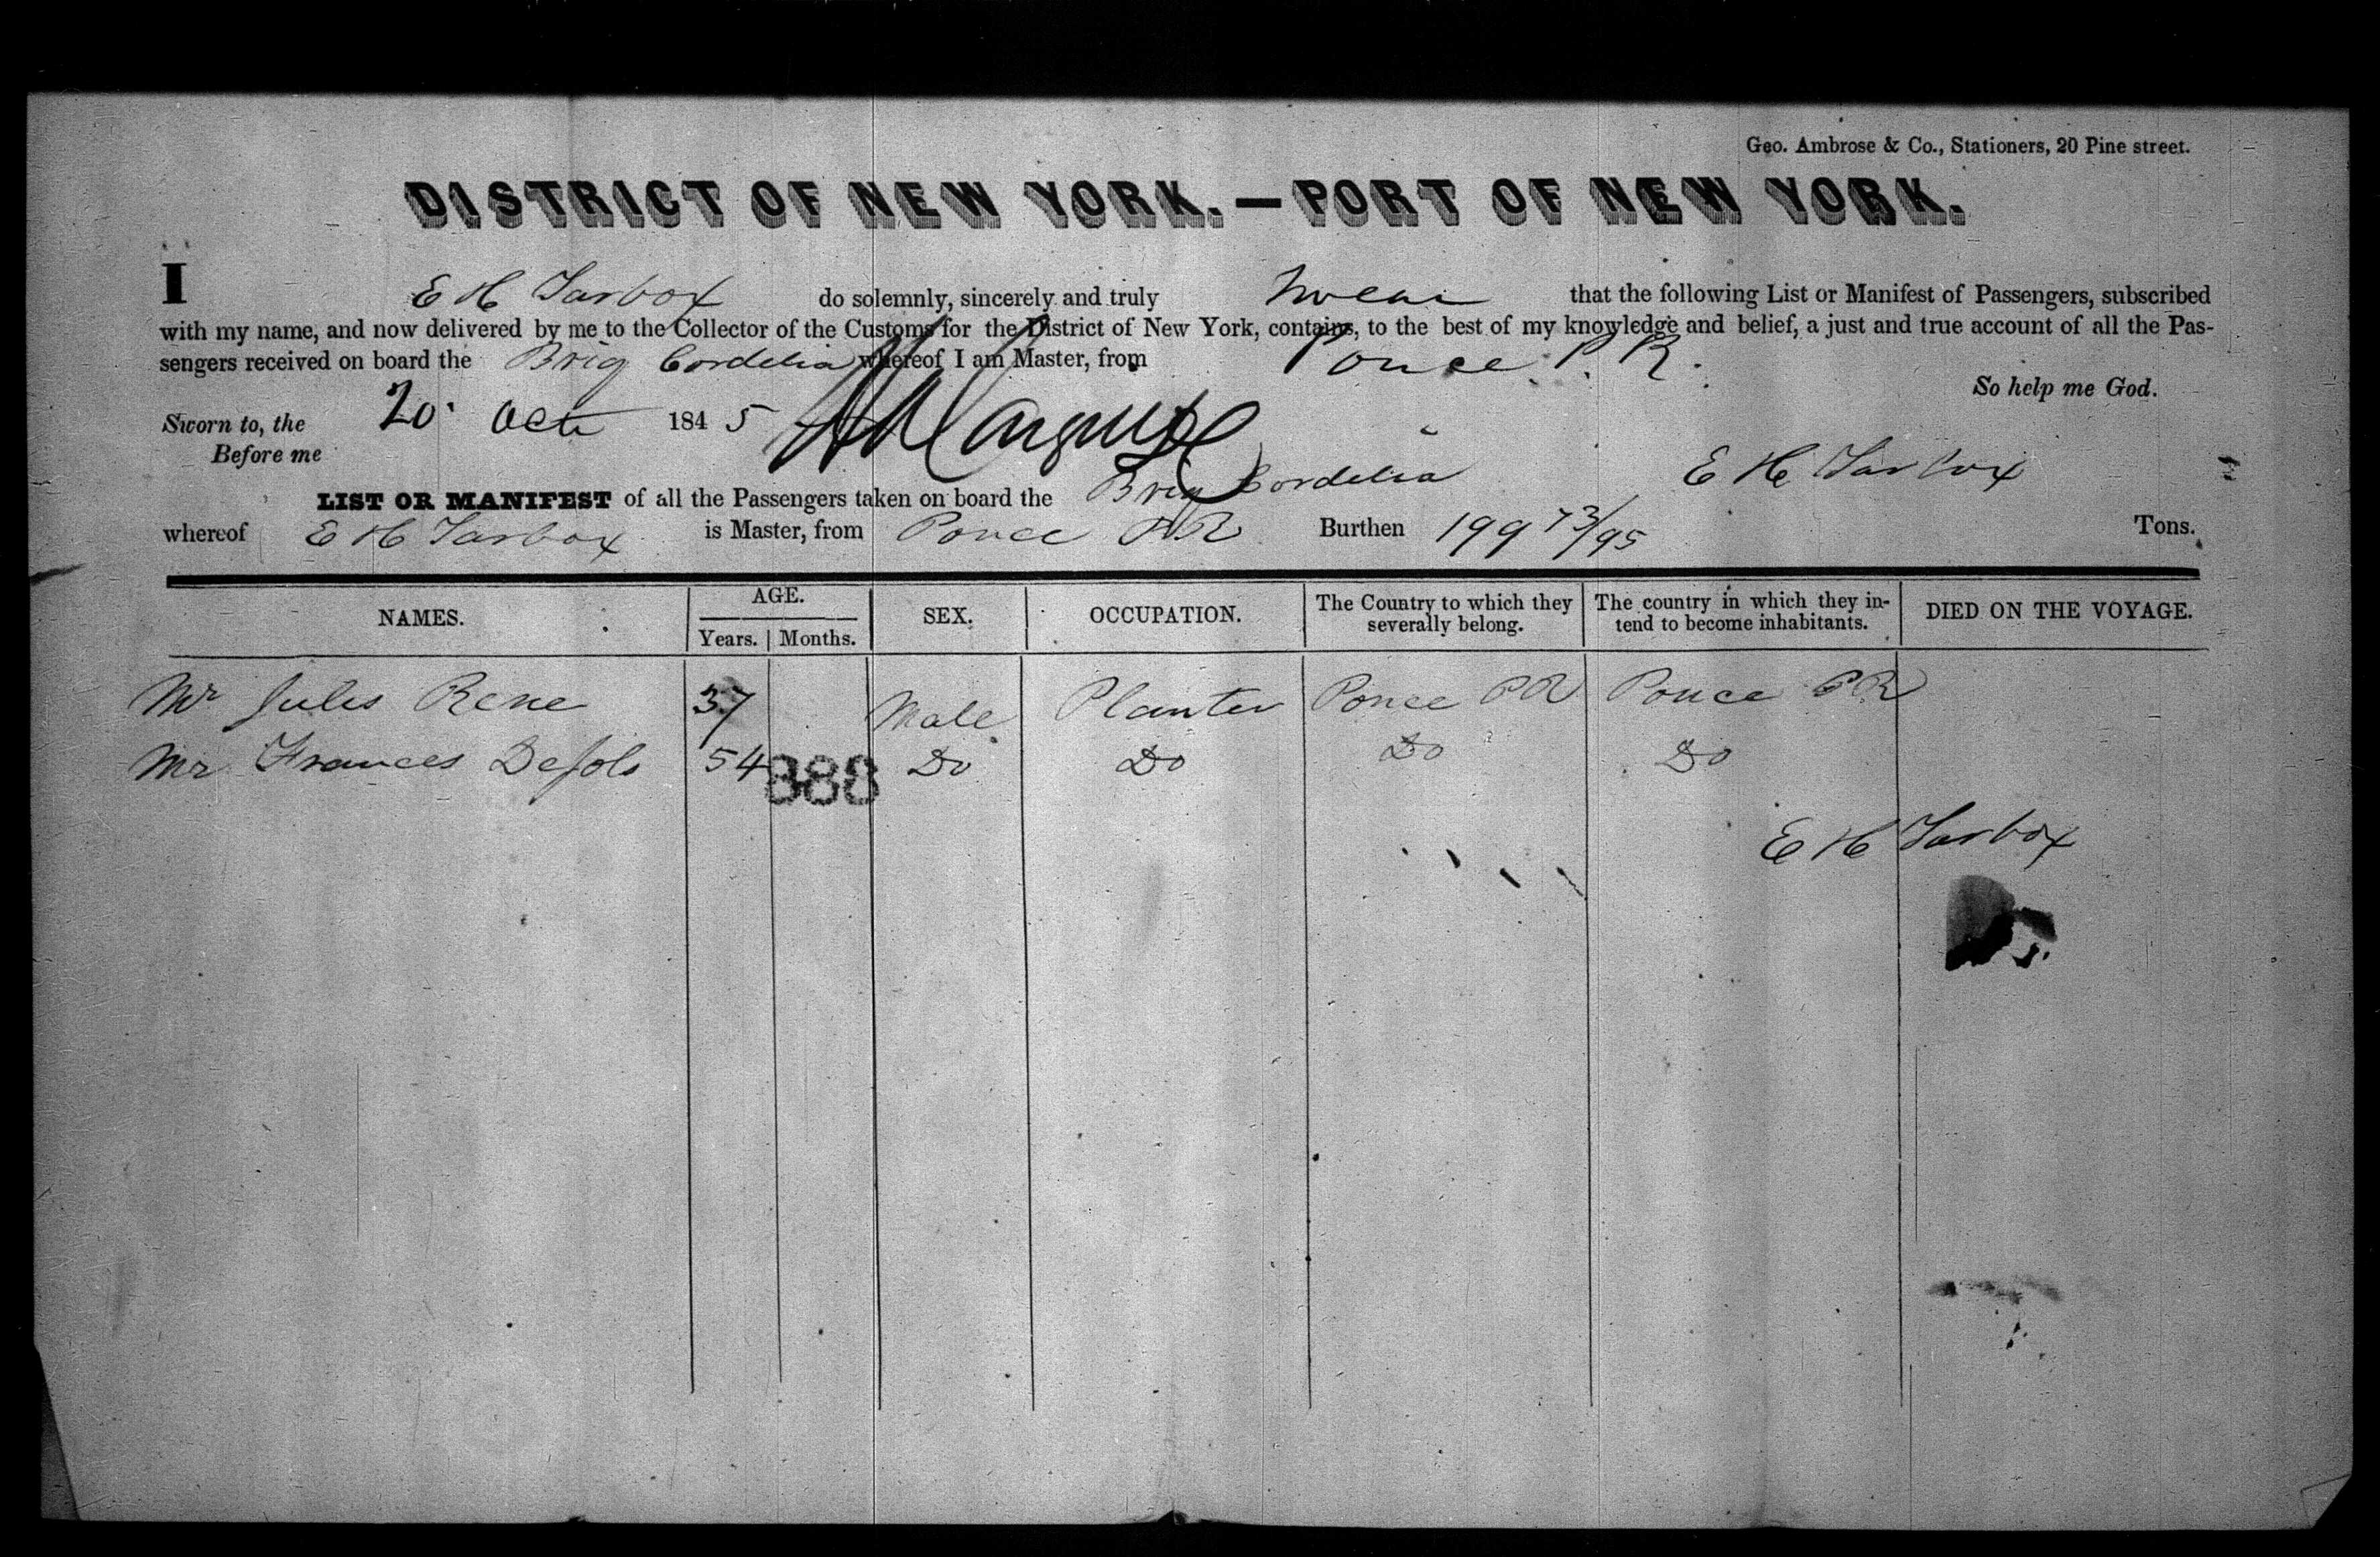 Geo. Ambrose & Co., Stationers, 20 Pine street.
DISTRICT OF NEW YORK.—PORT OF NEW YORK.
I E H Tarbox do solemnly, sincerely and truly swear that the following List or Manifest of Passengers, subscribed
with my name, and now delivered by me to the Collector of the Customs for the District of New York, contains, to the best of my knowledge and belief, a just and true account of all the Pas-
sengers received on board the Brig Cordelia whereof I am Master, from Ponce P. R.
So help me God.
Sworn to, the 20 Oct 1845
Before me
E H Tarbox
LIST OR MANIFEST of all the Passengers taken on board the Brig Cordelia
whereof E H Tarbox is Master, from Ponce PR Burthen 199 73/95 Tons.
NAMES. AGE. SEX. OCCUPATION. The Country to which they severally belong. The country in which they in-tend to become inhabitants. DIED ON THE VOYAGE.
Years. Months.
Mr Jules Rene 37 Male Planter Ponce PR Ponce PR
Mr Frances 54 Do Do Do Do
888
E H Tarbox